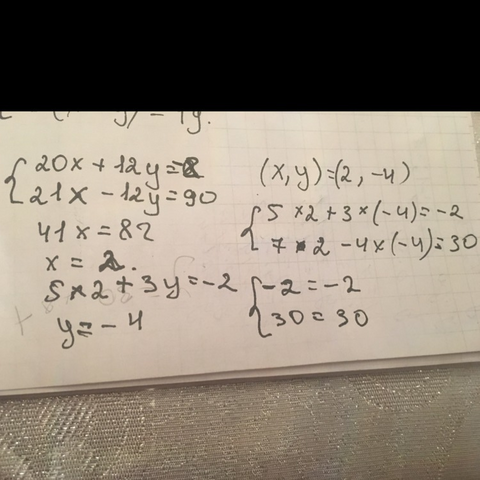 20x + 12y = -8
21x - 12y = 90
41x = 82
x = 2.
5 × 2 + 3y = -2
y = -4
(x, y) = (2, -4)
5 × 2 + 3 × (-4) = -2
7 × 2 - 4 × (-4) = 30
-2 = -2
30 = 30